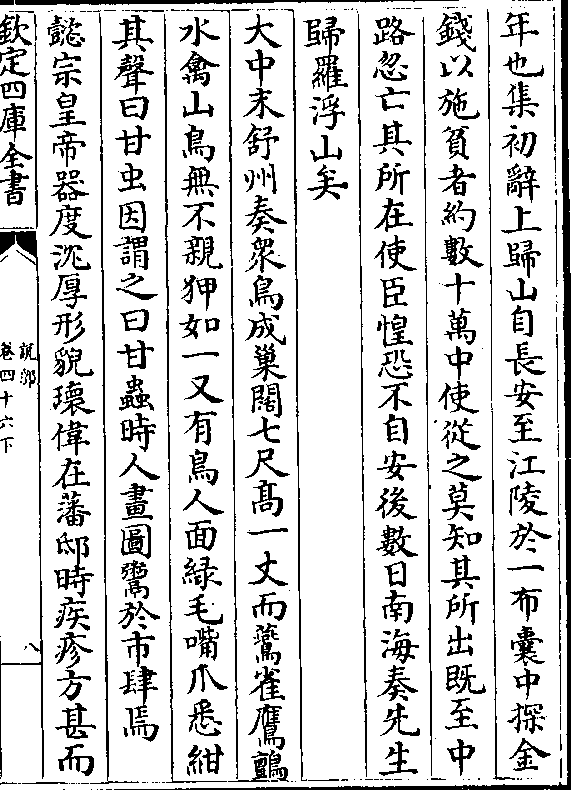 年也集初辭上歸山自長安至江陵於一布囊中探金
錢以施貧者約數十萬中使從之莫知其所出既至中
路忽亡其所在使臣惶恐不自安後數日南海奏先生
歸羅浮山矣
大中末舒州奏衆鳥成巢闊七尺髙一丈而鷰雀鷹鸇
水禽山鳥無不親狎如一又有鳥人面緑毛嘴爪悉紺
其聲曰甘虫因謂之曰甘蟲時人畫圖鬻於市肆焉
懿宗皇帝器度沈厚形貌瓌偉在藩邸時疾疹方甚而
欽定四庫全書
說郛
卷四十六下
八